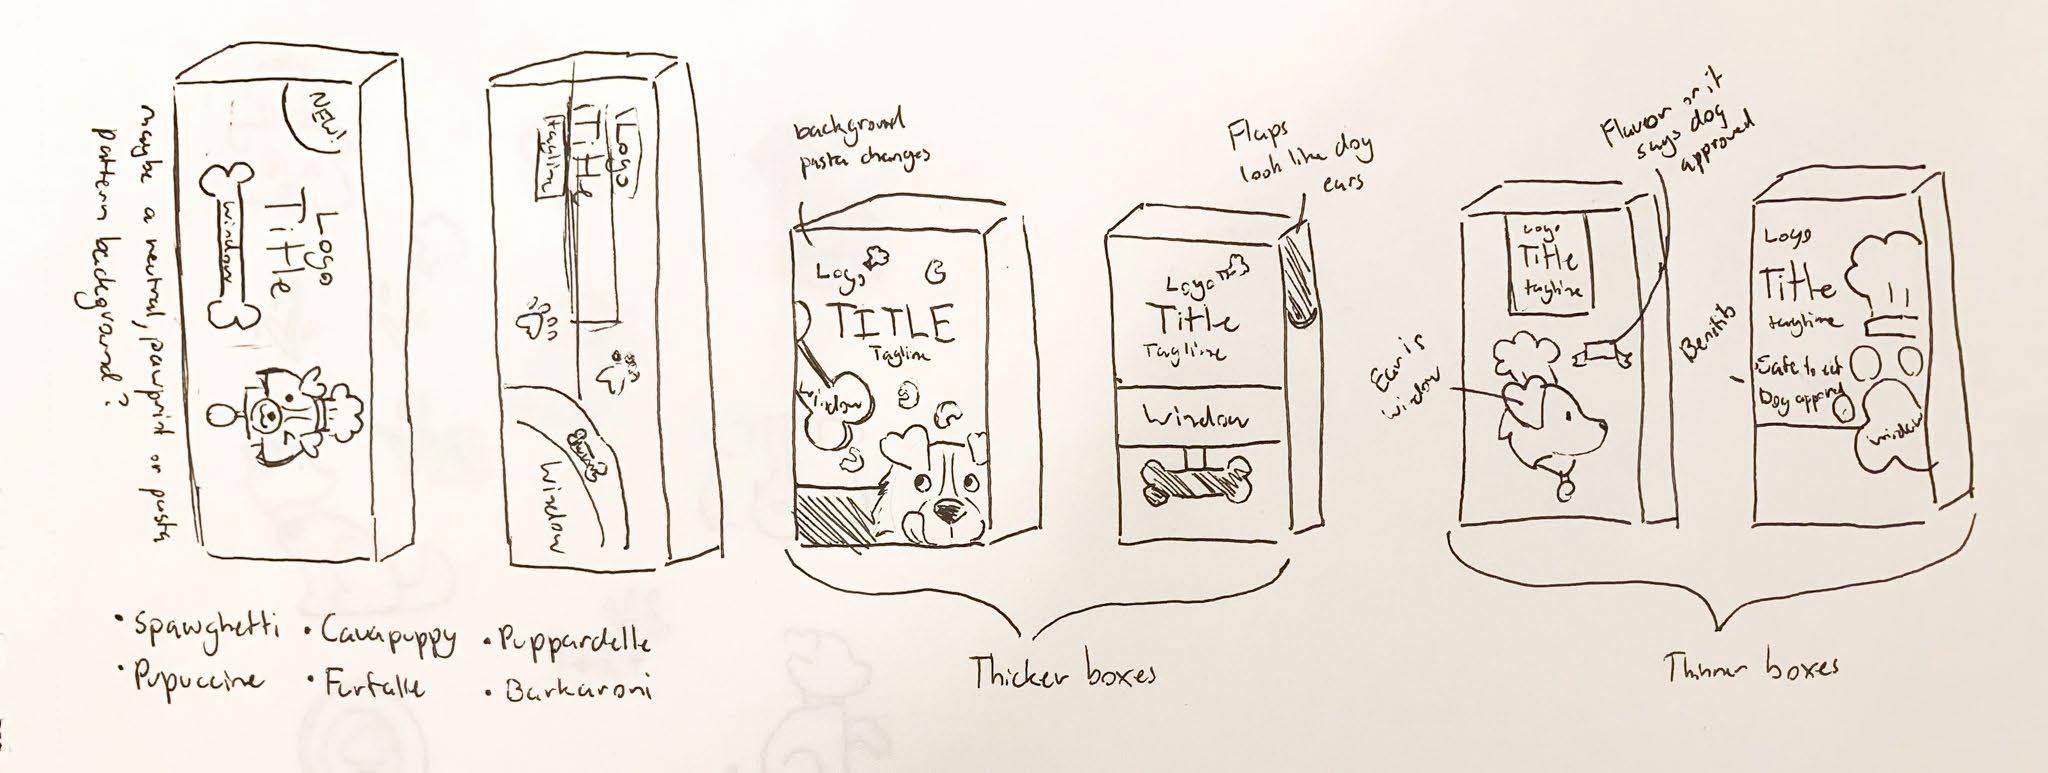 maybe a neutral, pawprint or pasta
pattern background?
NEW!
Logo
Title
window
Logo
Title
tagline
Window
background
pasta changes
Logo
TITLE
Tagline
Window
Flaps
look like dog
ears
Logo
Title
Tagline
Window
Flavor or it
says dog
approved
Logo
Title
tagline
Ear is
window
Benifits
Logo
Title
tagline
Safe to eat
Dog approved
window
• Spawghetti • Cavapuppy • Puppardelle
• Pupuccine • Furfalle • Barkaroni
Thicker boxes
Thinner boxes